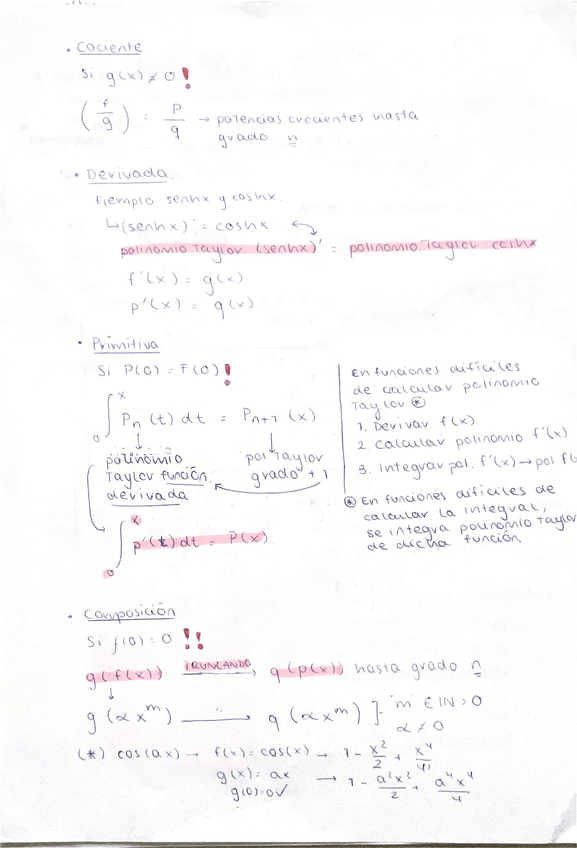 • Cociente
Si g(x) ≠ 0 !
(f/g) = p/q → potencias crecientes hasta
grado n
• Derivada
Ejemplo senhx y coshx.
↳ (senhx)' = coshx
polinomio Taylor (senhx)' = polinomio Taylor coshx
f'(x) = g(x)
p'(x) = q(x)
• Primitiva
Si P(0) = F(0) !
∫₀ˣ Pn(t) dt = Pn+1 (x)
↓ ↓
polinomio pol Taylor
Taylor función grado + 1
derivada
∫₀ˣ p'(t) dt = P(x)
En funciones difíciles
de calcular polinomio
Taylor ⊛
1. Derivar f(x)
2. Calcular polinomio f'(x)
3. Integrar pol. f'(x) → pol f(
⊛ En funciones difíciles de
calcular la integral,
se integra polinomio Taylor
de dicha función
• Composición
Si f(0) = 0 !!
g(f(x)) TRUNCANDO, q(p(x)) hasta grado n
↓
g(αx^m) —"→ q(αx^m) ]- m ∈ IN > 0
α ≠ 0
(*) cos(ax) → f(x) = cos(x) → 1 - x²/2 + x⁴/4!
g(x) = ax → 1 - a²x²/2 + a⁴x⁴/4
g(0) = 0 ✓